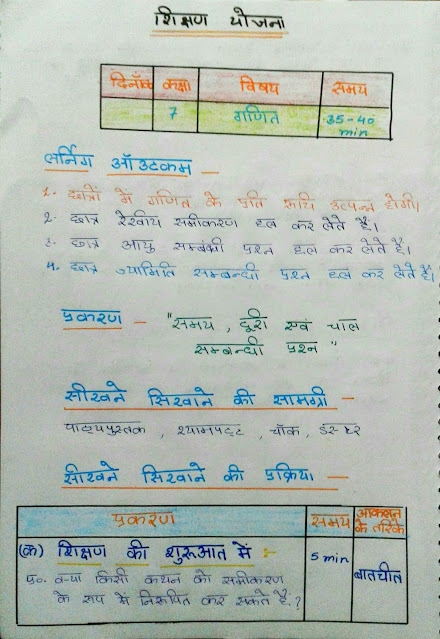 शिक्षण योजना
दिनाँक कक्षा विषय समय
7 गणित 35-40 min
लर्निंग ऑउटकम -
1- छात्रों में गणित के प्रति रूचि उत्पन्न होगी।
2- छात्र रेखीय समीकरण हल कर लेते हैं।
3- छात्र आयु सम्बन्धी प्रश्न हल कर लेते हैं।
4- छात्र ज्यामिति सम्बन्धी प्रश्न हल कर लेते हैं।
प्रकरण - "समय, दूरी एवं चाल
सम्बन्धी प्रश्न"
सीखने सिखाने की सामग्री -
पाठ्यपुस्तक, श्यामपट्ट, चॉक, डस्टर
सीखने सिखाने की प्रक्रिया -
प्रकरण समय आकलन के तरीके
(क) शिक्षण की शुरूआत में :- 5 min बातचीत
प्र०- क्या किसी कथन को समीकरण
के रूप में निरूपित कर सकते हैं?